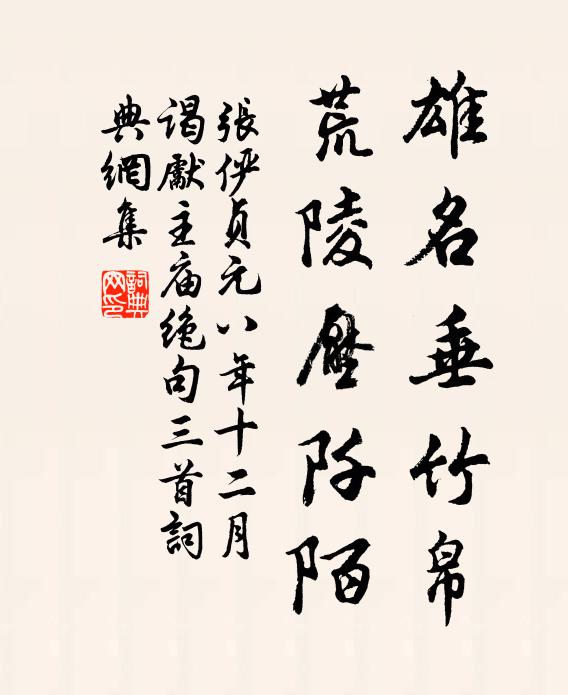 雄名垂竹帛
荒陵壓阡陌
張俨貞元八年十二月
谒獻主庙绝句三首詞
典網集
詞典網印